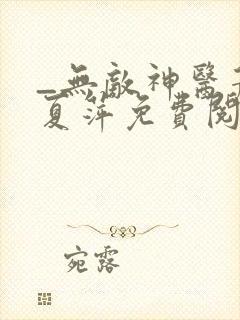 _無敵神醫
夏萍免費閱
宛露